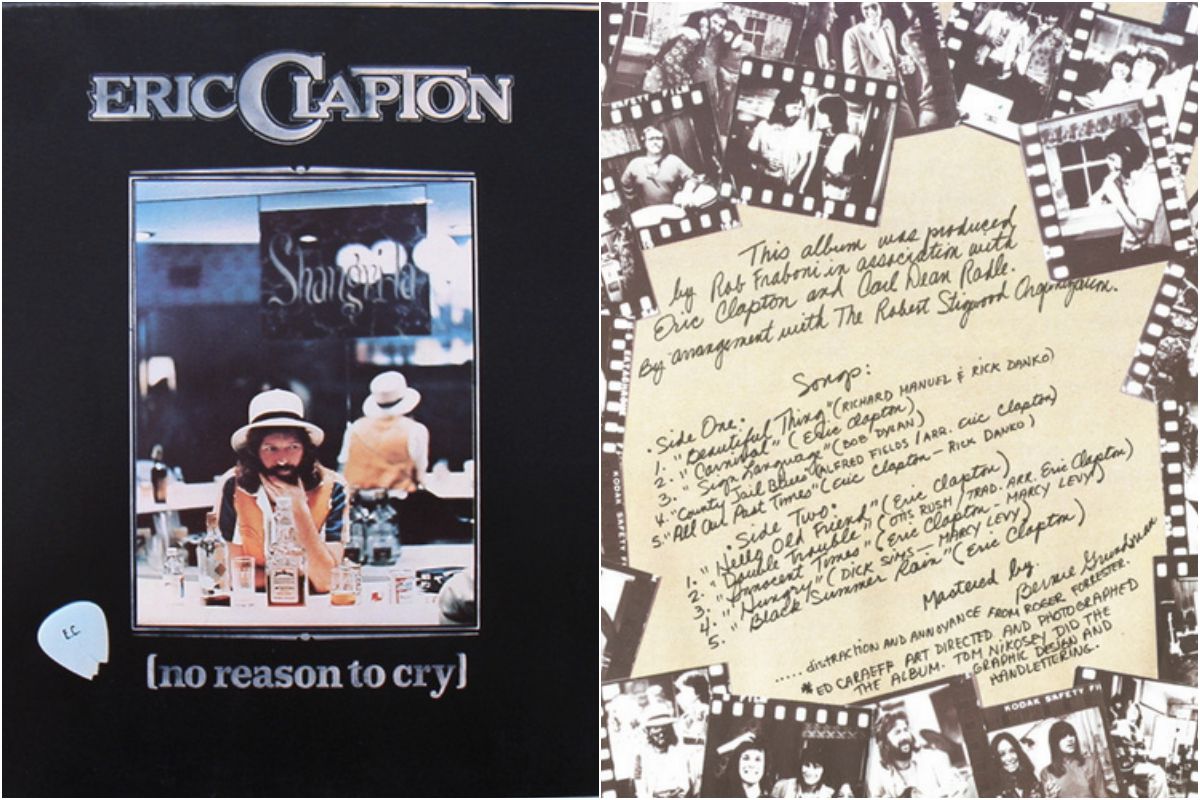 ERIC CLAPTON
Shangrila
E.C.
[no reason to cry]
SAFETY FILM
This album was produced
by Rob Fraboni in association with
Eric Clapton and Carl Dean Radle.
By arrangement with The Robert Stigwood Organization.
Songs:
• Side One:
1. "Beautiful Thing" (RICHARD MANUEL & RICK DANKO)
2. "Carnival" (Eric Clapton)
3. "Sign Language" (BOB DYLAN)
4. "County Jail Blues" (ALFRED FIELDS / ARR. Eric Clapton)
5. "All Our Past Times" (Eric Clapton - RICK DANKO)
• Side Two:
1. "Hello Old Friend" (Eric Clapton)
2. "Double Trouble" (OTIS RUSH / TRAD. ARR. Eric Clapton)
3. "Innocent Times" (Eric Clapton - MARCY LEVY)
4. "Hungry" (DICK SIMS - MARCY LEVY)
5. "Black Summer Rain" (Eric Clapton)
Mastered by.
Bernie Grundman
..... DISTRACTION AND ANNOYANCE FROM ROGER FORRESTER.
*ED CARAEFF ART DIRECTED AND PHOTOGRAPHED
THE ALBUM. TOM NIKOSEY DID THE
GRAPHIC DESIGN AND
HANDLETTERING.
KODAK SAFETY FI
KODAK SAFETY FI